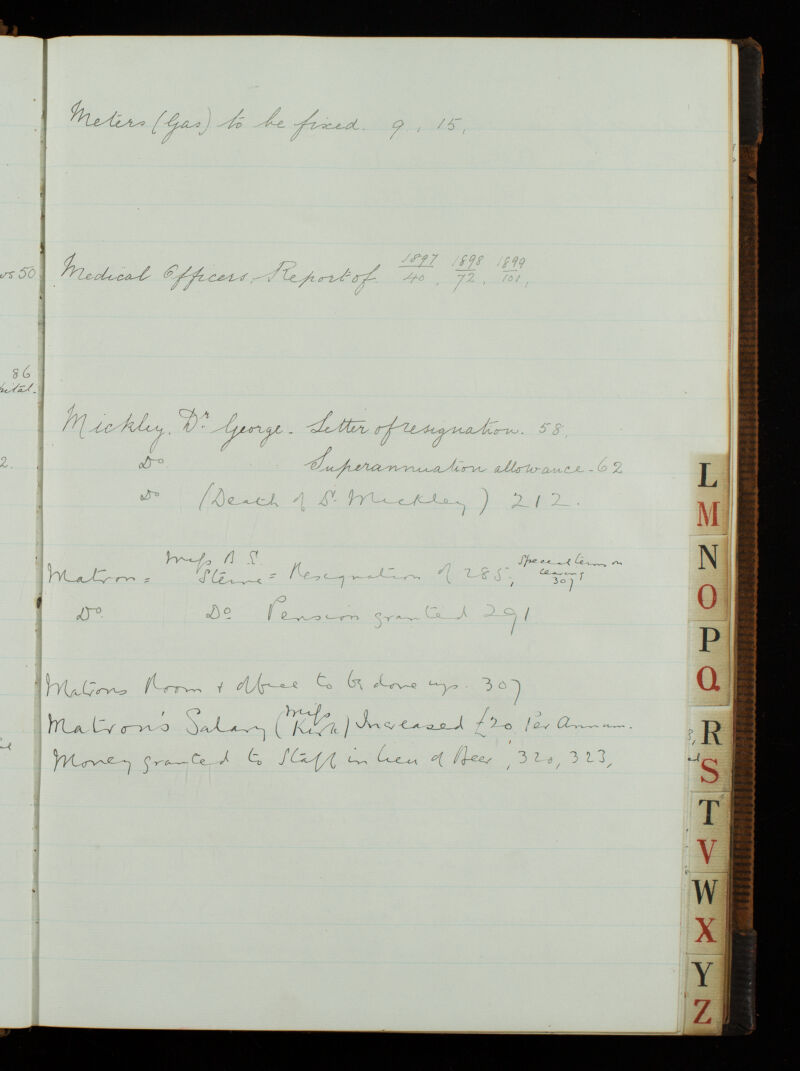 Meters (Gas) to be fixed. 9, 15,
Medical Officers, Report of 1897/40, 1898/72, 1899/101,
Mickley. Dr. George. Letter of resignation. 58,
Do Superannuation allowance - 62
Do (Death of Dr. Mickley) 212.
Matron = Miss A. S. Steine = Resignation of 285; Special terms on leaving 307
Do Do Pension granted 291
Matrons Room + office to be done up. 307
Matron's Salary (Miss Kirk) Increased £20 Per Annum.
Money granted to Staff in lieu of Beer, 320, 323,
50
86
2.
L
M
N
O
P
Q
R
S
T
V
W
X
Y
Z